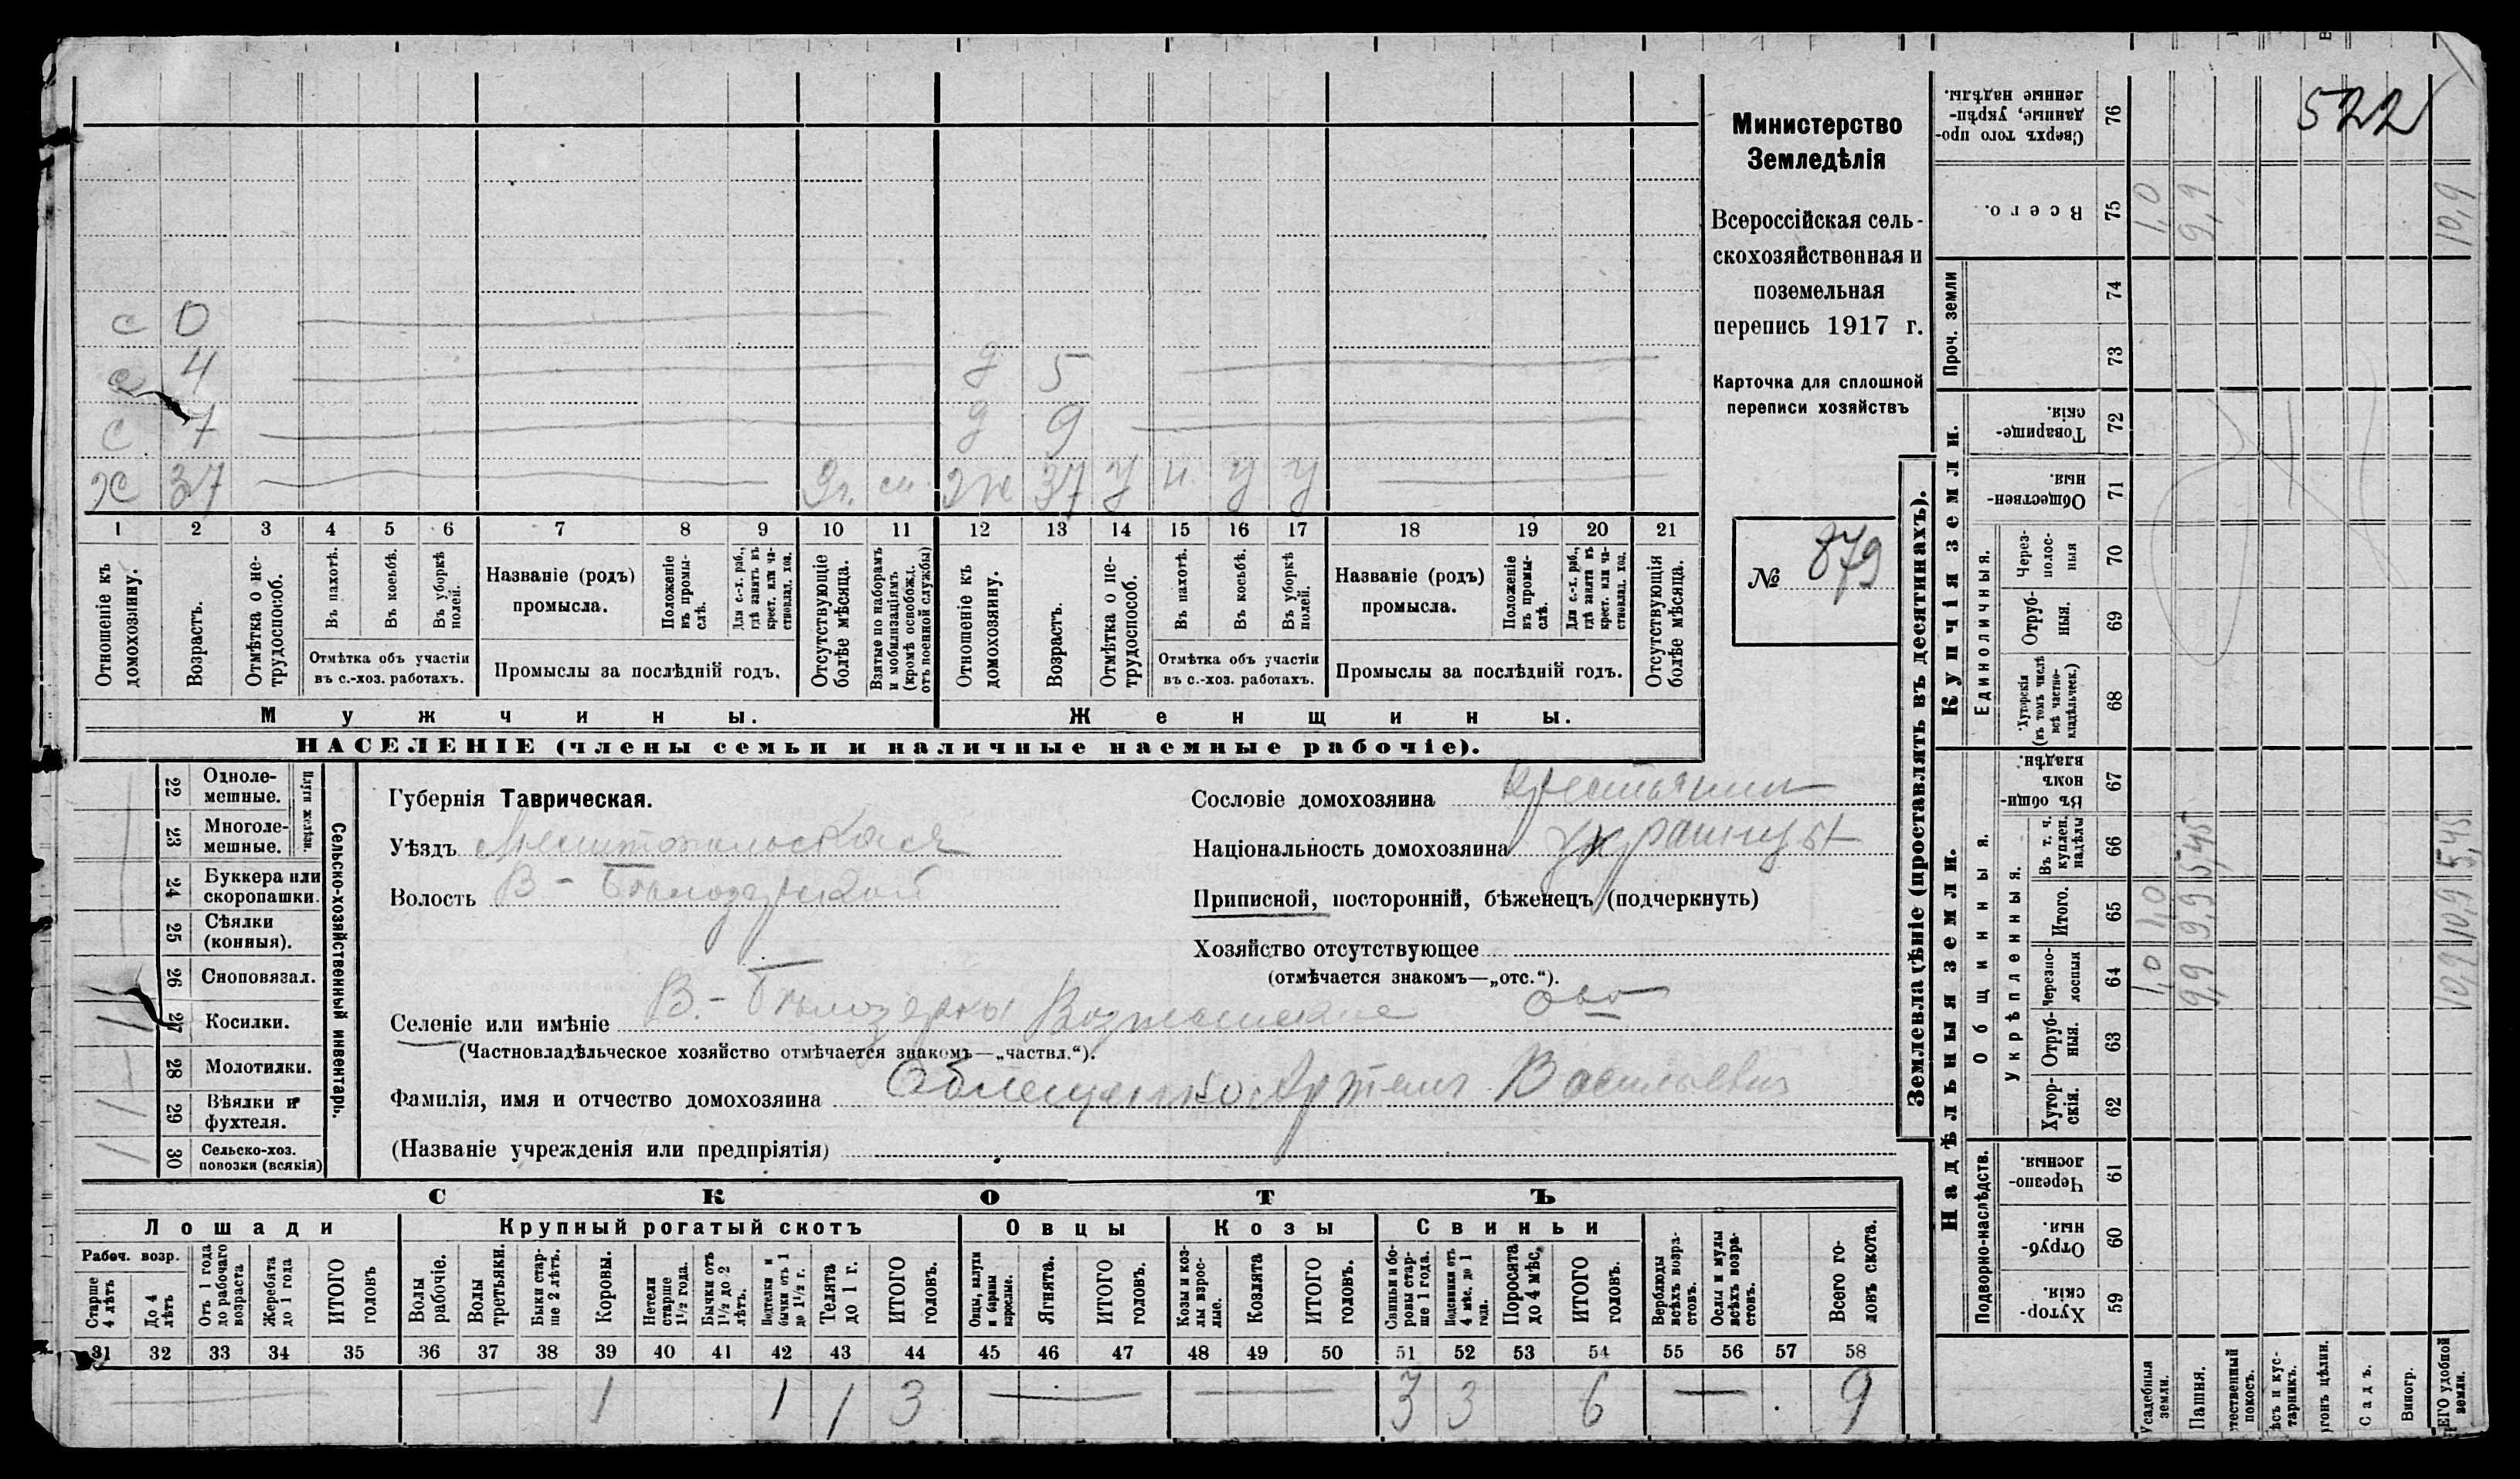 522
Министерство
Земледѣлія
Всероссійская сель-
скохозяйственная и
поземельная
перепись 1917 г.
Карточка для сплошной
переписи хозяйствъ
№ 879
с 0
с 4 д 5
с 7 д 9
х 37 37 у н у у
1 2 3 4 5 6 7 8 9 10 11 12 13 14 15 16 17 18 19 20 21
Отношеніе къ домохозяину.
Возрастъ.
Отмѣтка о не-трудоспособ.
Въ пахотѣ.
Въ косьбѣ.
Въ уборкѣ полей.
Отмѣтка объ участіи
въ с.-хоз. работахъ.
Названіе (родъ)
промысла.
Положеніе въ промы-слѣ.
Для с.-х. раб., гдѣ занятъ въ крест. или ча-стновлад. хоз.
Промыслы за послѣдній годъ.
Отсутствующіе болѣе мѣсяца.
Взятые по наборамъ и мобилизаціямъ (кромѣ освобожд. отъ военной службы)
Отношеніе къ домохозяину.
Возрастъ.
Отмѣтка о не-трудоспособ.
Въ пахотѣ.
Въ косьбѣ.
Въ уборкѣ полей.
Отмѣтка объ участіи
въ с.-хоз. работахъ.
Названіе (родъ)
промысла.
Положеніе въ промы-слѣ.
Для с.-х. раб., гдѣ занята въ крест. или ча-стновлад. хоз.
Промыслы за послѣдній годъ.
Отсутствующія болѣе мѣсяца.
Мужчины. Женщины.
НАСЕЛЕНІЕ (члены семьи и наличные наемные рабочіе).
22 Одноле-мешные.
23 Многоле-мешные.
Плуги желѣзн.
24 Буккера или скоропашки.
25 Сѣялки (конныя).
26 Сноповязал.
27 Косилки. 1
28 Молотилки.
29 Вѣялки и фухтеля. 1
30 Сельско-хоз. повозки (всякія) 1
Сельско-хозяйственный инвентарь.
Губернія Таврическая.
Уѣздъ Мелитопольская
Волость В-Бѣлозерской
Селеніе или имѣніе В.-Бѣлозерка
(Частновладѣльческое хозяйство отмѣчается знакомъ—„частвл.“).
Фамилія, имя и отчество домохозяина Васильевич
(Названіе учрежденія или предпріятія)
Сословіе домохозяина Крестьянин
Національность домохозяина
Приписной, посторонній, бѣженецъ (подчеркнуть)
Хозяйство отсутствующее
(отмѣчается знакомъ—„отс.“).
СКОТЪ
Лошади Крупный рогатый скотъ Овцы Козы Свиньи
Рабоч. возр.
Старше 4 лѣтъ
До 4 лѣтъ
Отъ 1 года до рабочаго возраста
Жеребята до 1 года
ИТОГО головъ
Волы рабочіе.
Волы третьяки.
Быки стар-ше 2 лѣтъ.
Коровы.
Нетели старше 1½ года.
Бычки отъ 1½ до 2 лѣтъ.
Подтелки и бычки отъ 1 до 1½ г.
Телята до 1 г.
ИТОГО головъ.
Овцы, валухи и бараны взрослые.
Ягнята.
ИТОГО головъ.
Козы и коз-лы взрос-лые.
Козлята
ИТОГО головъ.
Свиньи и бо-ровы стар-ше 1 года.
Подсвинки отъ 4 мѣс. до 1 года.
Поросята до 4 мѣс.
ИТОГО головъ.
Верблюды всѣхъ возра-стовъ.
Ослы и мулы всѣхъ возра-стовъ.
Всего го-ловъ скота.
31 32 33 34 35 36 37 38 39 40 41 42 43 44 45 46 47 48 49 50 51 52 53 54 55 56 57 58
1 1 1 3 3 3 6 9
Землевладѣніе (проставлять въ десятинахъ).
Купчія земли.
Надѣльныя земли.
76 Сверхъ того про-данные, укрѣп-ленные надѣлы.
75 Всего. 1,0 9,9 10,9
Проч. земли
74
73
72 Товарище-скія.
71 Обществен-ныя.
Единоличныя.
70 Через-полос-ныя
69 Отруб-ныя.
68 Хуторскія (въ томъ числѣ всѣ частно-владѣльческ.)
Общинныя.
67 Въ общи-номъ владѣн.
Укрѣпленныя.
66 Въ т. ч. куплен. надѣлы 5,45 5,45
65 Итого. 1,0 9,9 10,9
64 Черезпо-лосныя 1,0 9,9 10,9
63 Отруб-ныя.
62 Хутор-скія.
Подворно-наслѣдств.
61 Черезпо-лосныя.
60 Отруб-ныя.
59 Хутор-скія.
Усадебныя земли.
Пашня.
покосъ.
тарникъ.
цѣлин.
Садъ.
Виногр.
удобной земли.